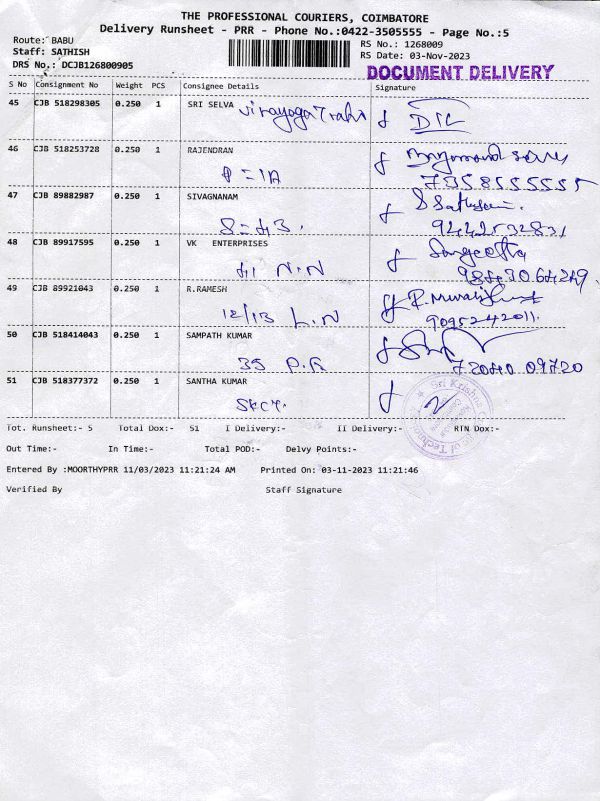 THE PROFESSIONAL COURIERS, COIMBATORE
Delivery Runsheet - PRR - Phone No.:0422-3505555 - Page No.:5
Route: BABU
RS No.: 1268009
Staff: SATHISH
RS Date: 03-Nov-2023
DRS No.: DCJB126800905
DOCUMENT DELIVERY
S No Consignment No Weight PCS Consignee Details Signature
45 CJB 518298305 0.250 1 SRI SELVA
46 CJB 518253728 0.250 1 RAJENDRAN
7358555555
47 CJB 89882987 0.250 1 SIVAGNANAM
9442532831
48 CJB 89917595 0.250 1 VK ENTERPRISES Sangeetha
41 N.N
49 CJB 89921043 0.250 1 R.RAMESH
12/13 L.N 9095242011.
50 CJB 518414043 0.250 1 SAMPATH KUMAR
35 72040 09720
51 CJB 518377372 0.250 1 SANTHA KUMAR
SKCT.
Sri Krishna
Tot. Runsheet:- 5 Total Dox:- 51 I Delivery:- II Delivery:- RTN Dox:-
Out Time:- In Time:- Total POD:- Delvy Points:-
Entered By :MOORTHYPRR 11/03/2023 11:21:24 AM Printed On: 03-11-2023 11:21:46
Verified By Staff Signature